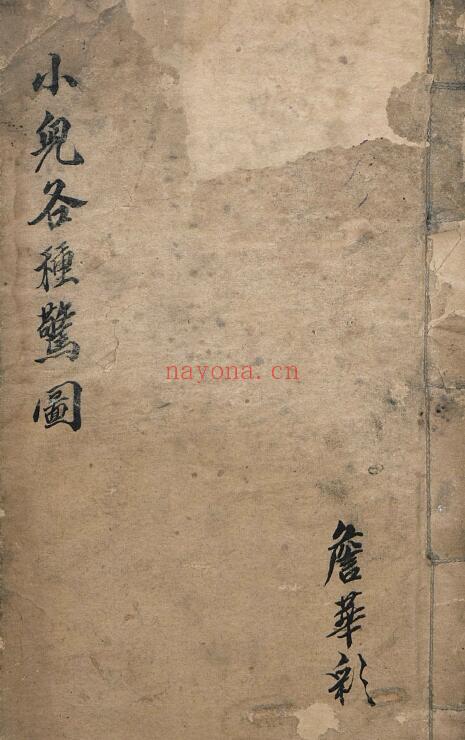 小兒各種驚圖
詹華彩
nayona.cn